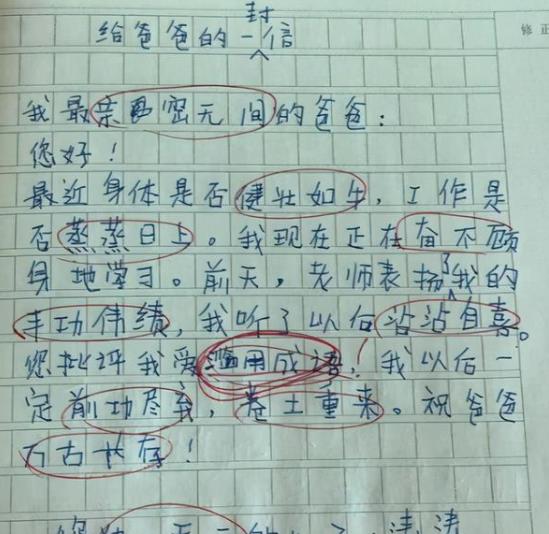 修正
给爸爸的一封信
我最亲密无间的爸爸：
您好！
最近身体是否健壮如牛，工作是
否蒸蒸日上。我现在正在奋不顾
身地学习。前天，老师表扬了我的
丰功伟绩，我听了以后沾沾自喜。
您批评我爱滥用成语！我以后一
定前功尽弃，卷土重来。祝爸爸
万古长存！